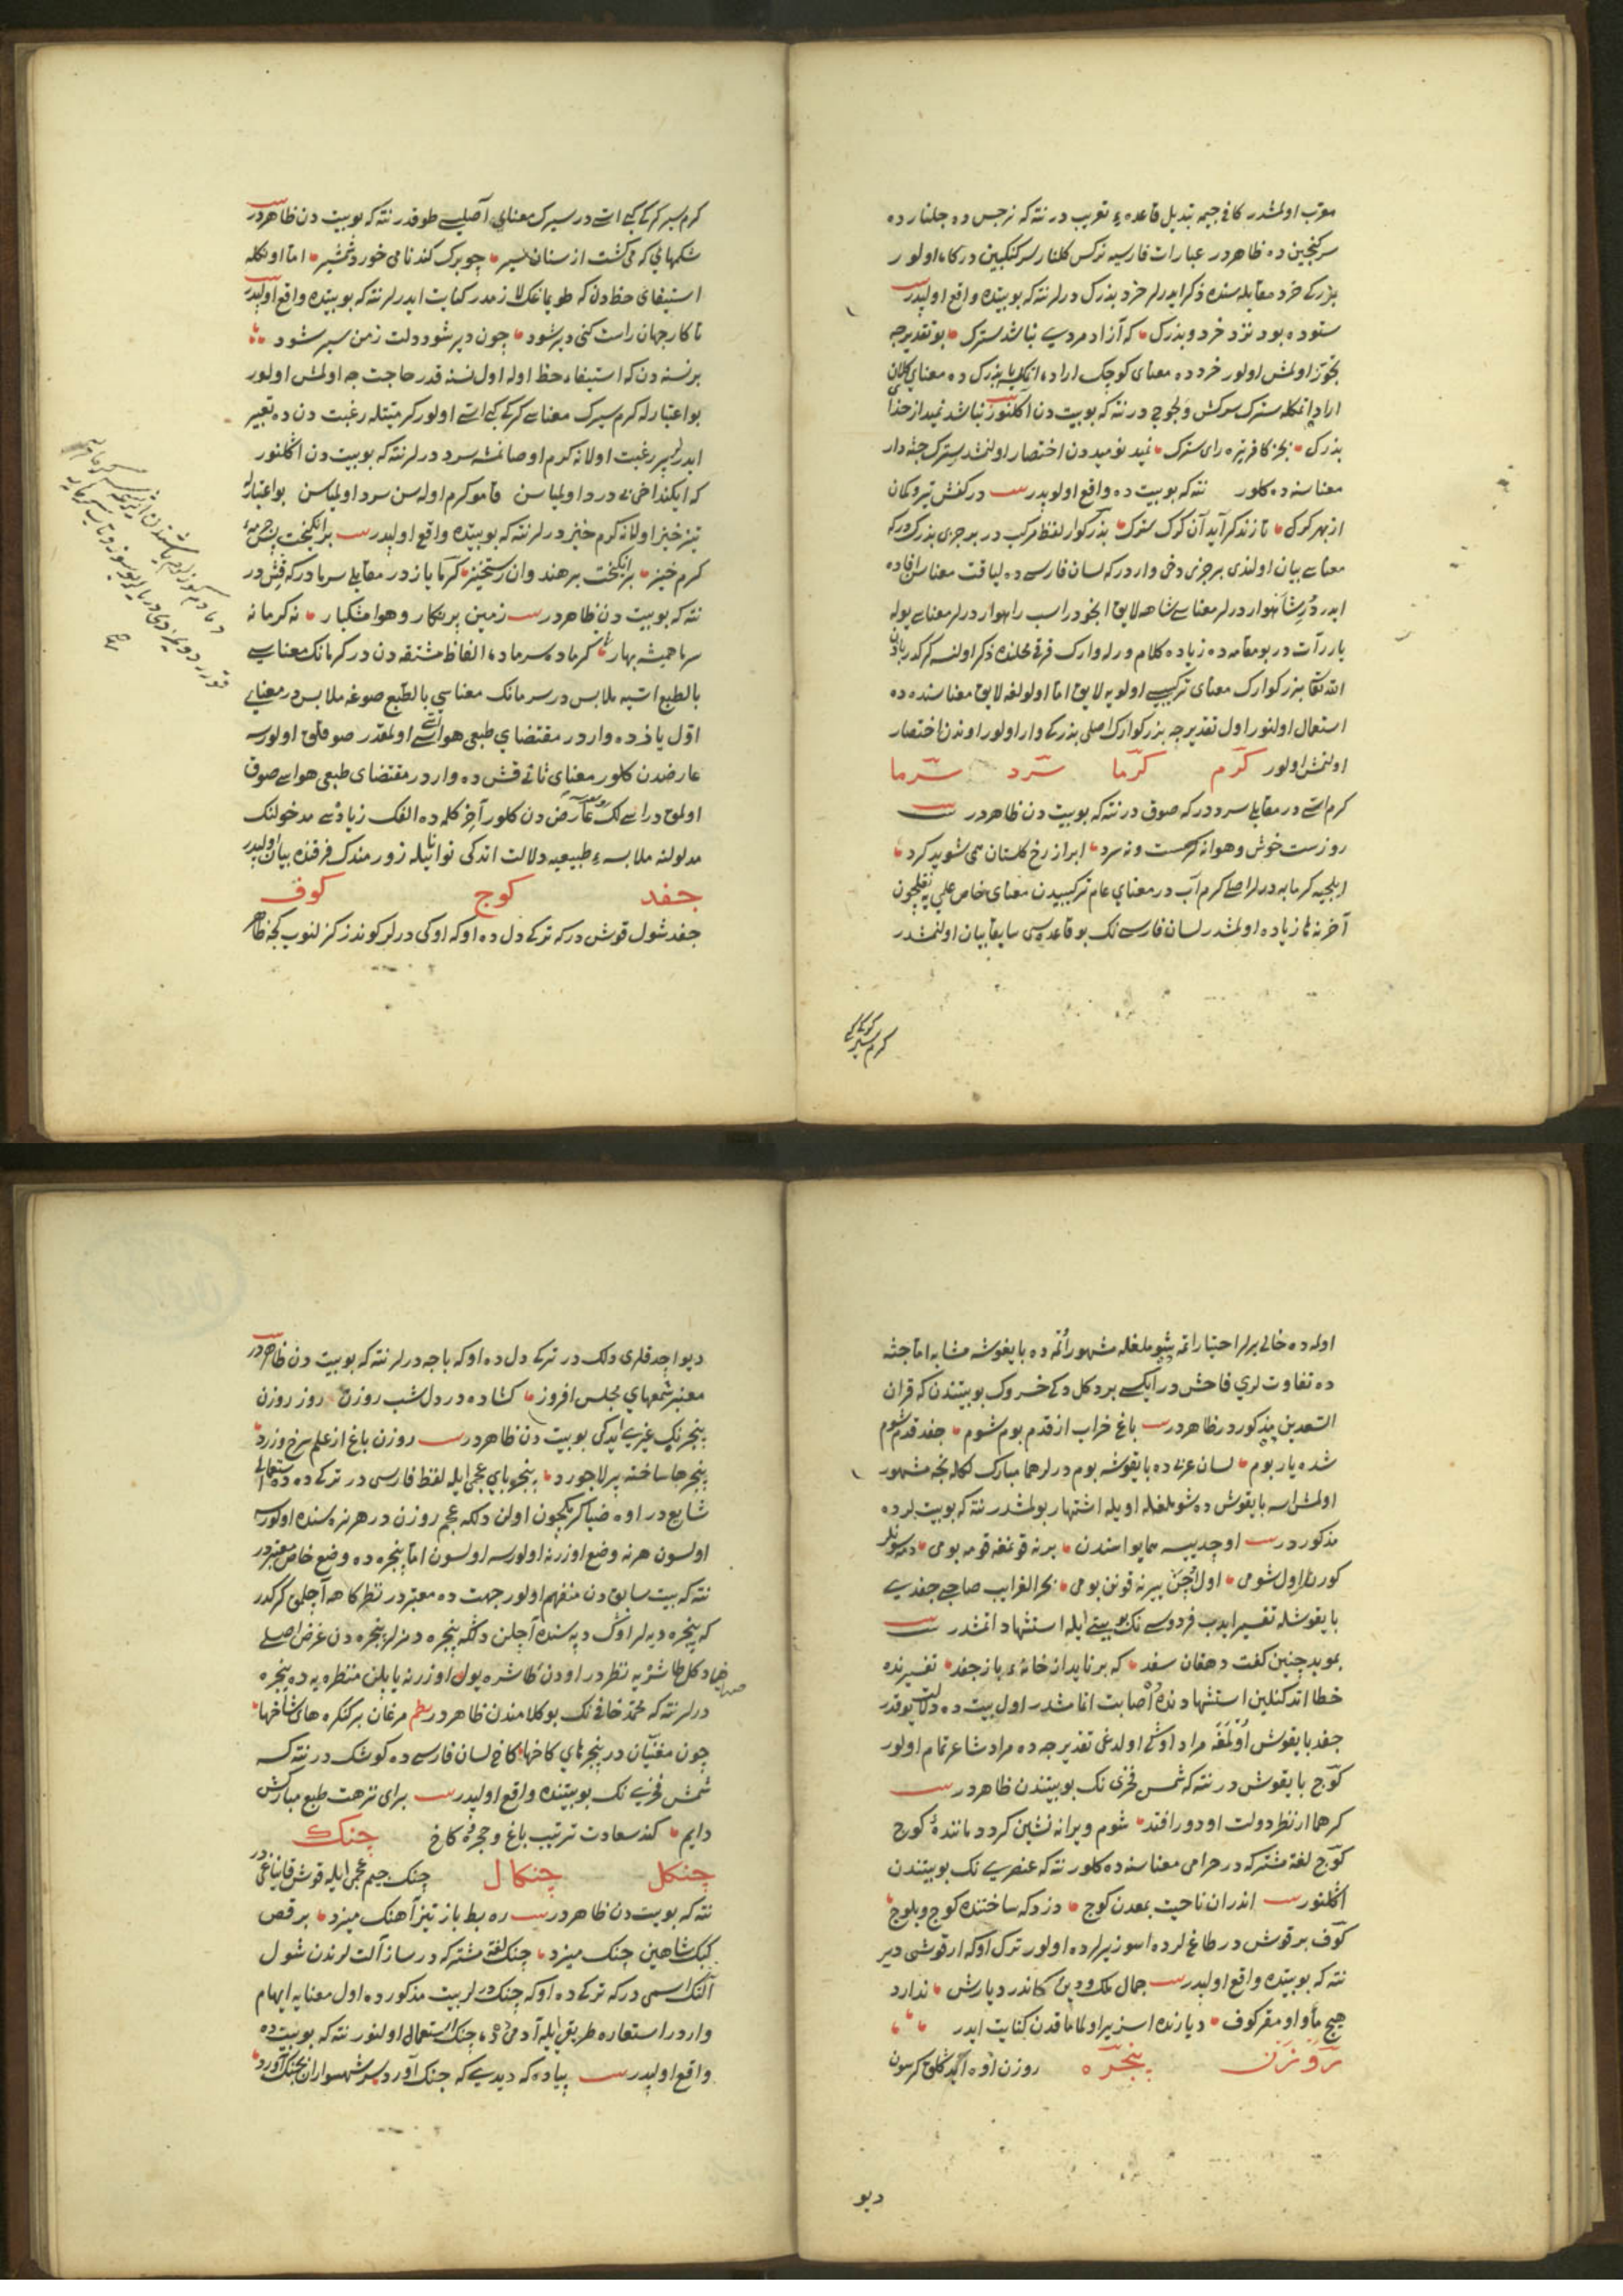 معرّب اولمشدر كافی جیمه تبدیل قاعده‌ء تعریب در نته كه نرجس ده جلنار ده
سركنجبین ده ظاهردر عبارات فارسیه نركس كلنار سركنكبین در كاه اولور
بزركی خرد مقابله سنده ذكر ایدرلر خرد بزرك درلر نته كه بو بیتده واقع اولیدر
ستوده بود نزد خرد و بزرك كه آزاد مردی نباشد سترك بو تقدیرجه
تجوّز اولمش اولور خرد ده معنای كوچك اراده اتكله بزرك ده معنای كلان
اراده اتمكله سترك سركش و لجوج در نته كه بو بیت دن اكلنور نباشد نمید از خدا
بزرك بجز كافر تیره رای سترك نمید نومید دن اختصار اولنمشدر سترك جثه دار
معناسنه ده كلور نته كه بو بیت ده واقع اولوبدر در كفش تیر و كمان
از بهر كرك تا زند كر آید آن كرك سترك بزركوار لفظ مركب در بر جزی بزرك دركه
معناسی بیان اولندی بر جزی دخی وار دركه لسان فارسی ده لیاقت معناسن افاده
ایدر درّ شاهوار درلر معناسی شاهه لایق انجو در اسب راهوار درلر معناسی یوله
یارر آت در بو مقامه ده زیاده كلام ور لر وارك فرقی محلنده ذكر اولنسه كركدر باذن
الله تعالی بزركوارك معنای تركیبیسی اولویه لایق امّا اولولغه لایق معناسنده ده
استعمال اولنور اول تقدیرجه بزركوارك اصلی بزركی وار اولور اوندن اختصار
اولنمش اولور كرم كرما سرد سرما
كرم اسّی در مقابلی سرد دركه صوق در نته كه بو بیت دن ظاهردر
روزست خوش و هوا نه كرمست و نه سرد ابر از رخ كلستان همی شوید كرد
ایلیجه كرمابه درلر اصلی كرم آب در معنای عام تركیبیدن معنای خاص علمی یه نقلیچون
آخرنه ها زیاده اولمشدر لسان فارسی نك بو قاعده سی سابقا بیان اولنمشدر
كرم سیر
كرم سیر كركی كبی اسّی در سیرك معنای اصلیسی طوقدر نته كه بو بیت دن ظاهردر
شكمهایی كه می كشت از سنان سیر چو برك كندنا می خورد شمشیر امّا اونكله
استیفای حظ دن كه طویمانك لازمیدر كنایت ایدرلر نته كه بو بیتده واقع اولیدر
تا كار جهان راست كنی دیر شود چون دیر شود دلت زمن سیر شود
بر نسنه دن كه استیفاء حظ اوله اول نسنه قدر حاجت جه اولمش اولور
بو اعتبارله كرم سیرك معناسی كركی كبی اسّی اولور كرمیتله رغبت دن ده تعبیر
ایدرلر رغبت اولانه كرم اوصانمشه سرد درلر نته كه بو بیت دن اكلنور
كه ایكنداخی نه درد اولماسن قامو كرم اوله سن سرد اولماسن بو اعتبارله
تیز خیز اولانه كرم خیز درلر نته كه بو بیتده واقع اولیدر برانكیخت پس چرمه‌ء
كرم خیز برانكیخت بر هندوان رستخیز كرما یاز در مقابلی سرما دركه قش در
نته كه بو بیت دن ظاهردر زمین پر نكار و هوا مشكبار نه كرما نه
سرما همیشه بهار كرما ده سرما ده الفاظ مشتقه دن در كرمانك معناسی
بالطبع اسّیه ملابس در سرمانك معناسی بالطبع صوغه ملابس در معنای
اوّل یاز ده وار در مقتضای طبعی هوا اسّی اولمقدر صوقلق اولورسه
عارضدن كلور معنای ثانی قش ده وار در مقتضای طبعی هواسی صوق
اولمق در اسّی لك عارض دن كلور آخر كلمه ده الفك زیادتی مدخولنك
مدلولنه ملابسه‌ء طبیعیه دلالت اندكی توانا ایله زورمندك فرقنده بیان اولیدر
جغد كوج كوف
جغد شول قوش دركه تركی دل ده اوكه اوكی درلر كوندز كزلنوب كجه ظاهر
اولده خالی یرلر اختیار اتمه شوملغله مشهور اتمه ده بایغوشه مشابه امّا جثه
ده تفاوت لری فاحش در ایكسی بر دكل دكی خسروك بو بیتندن كه قران
السعدین مذكوردر ظاهردر باغ خراب از قدم بوم شوم جغد قدم شوم
شده یار بوم لسان عربی ده بایقوشه بوم درلر هما مبارك لكله نجه مشهور
اولمش ایسه بایقوش ده شوملغله اویله اشتهار بولمشدر نته كه بو بیتلرده
مذكوردر
بایقوشله تفسیر ایدب فردوسی نك بو بیتی ایله استشهاد اتمشدر
بموبد چنین كفت دهقان سغد كه بر ناید از خانه‌ء باز جغد تفسیرنده
خطا اتدكنلین استشهادنده اصابت اتمامشدر اول بیت ده دلالت یوقدر
جغد بایقوش اولمغه مراد اوكی اولدغی تقدیرجه ده مراد شاعر تمام اولور
كوج بایقوش در نته كه شمس فخری نك بو بیتندن ظاهردر
كر هما از نظر دولت او دور افتد شوم و ویرانه نشین كردد مانندهٔ كوج
كوج لغة مشتركه در حرامی معناسنه ده كلور نته كه عنصری نك بو بیتندن
اكلنور اندران ناحیت بمعدن كوج دزدكه ساختند كوج و بلوج
كوف بر قوش در طاغلرده اسوز یرلرده اولور ترك اوكه ارقوشی دیر
نته كه بو بیتده واقع اولیدر جمال ملك و دین كاندر دیارش ندارد
هیچ مأوا و مقر كوف دیارنده اسز یر اولمامقدن كنایت ایدر
روزن پنجره
دیو
دیو اجدقلری دلك در تركی دل ده اوكه باجه درلر نته كه بو بیت دن ظاهردر
معنبر شمعهای مجلس افروز كشاده در دل شب روزن روز روزن
پنجره نك غیری ایدكی بو بیت دن ظاهردر روزن باغ از علم سرخ و زرد
پنجرها ساخته پر لاجورد پنجره بای عجمی ایله لفظ فارسی در تركی ده ده استعمالی
شایع در اوه ضیا كرمكچون اولن دلكه عجم روزن در هر نره سنده اولورسه
اولسون هر نه وضع اوزرنه اولورسه اولسون امّا پنجره ده وضع خاص معتبر در
نته كه بیت سابق دن منفهم اولور جهت ده معتبر در نظركاهه آچلمق كركدر
كه پنجره دیه لر اوك دپه سنده آچلن دلكه پنجره دمزلر پنجره دن غرض اصلی
ضیا دكل طاشره یه نظر در اودن طاشره یول اوزرنه یاپلن منظره یه ده پنجره
درلر نته كه محمّد خافی نك بو كلامندن ظاهردر نظم مرغان بر كنكره های شاخها
چون مغنّیان در پنجره های كاخها كاخ لسان فارسی ده كوشك در نته كه
شمس فخری نك بو بیتنده واقع اولیدر برای نزهت طبع مباركش
دایم كند سعادت ترتیب باغ و حجرهٔ كاخ چنك
چنكل چنكال چنك جیم عجمی ایله قوش قایناغی در
نته كه بو بیت دن ظاهردر ره بط باز تیز آهنك میزد برقص
كبك شاهین چنك میزد چنك لغة مشتركه در ساز آلت لرندن شول
آلتك اسمی دركه تركی ده اوكه چنك درلر بیت مذكورده اول معنایه ایهام
وار در استعاره طریقی ایله آدمی ده چنك استعمال اولنور نته كه بو بیت ده
واقع اولیدر پیاده كه دیدی كه جنك آورد سر شهسواران بچنك آورد